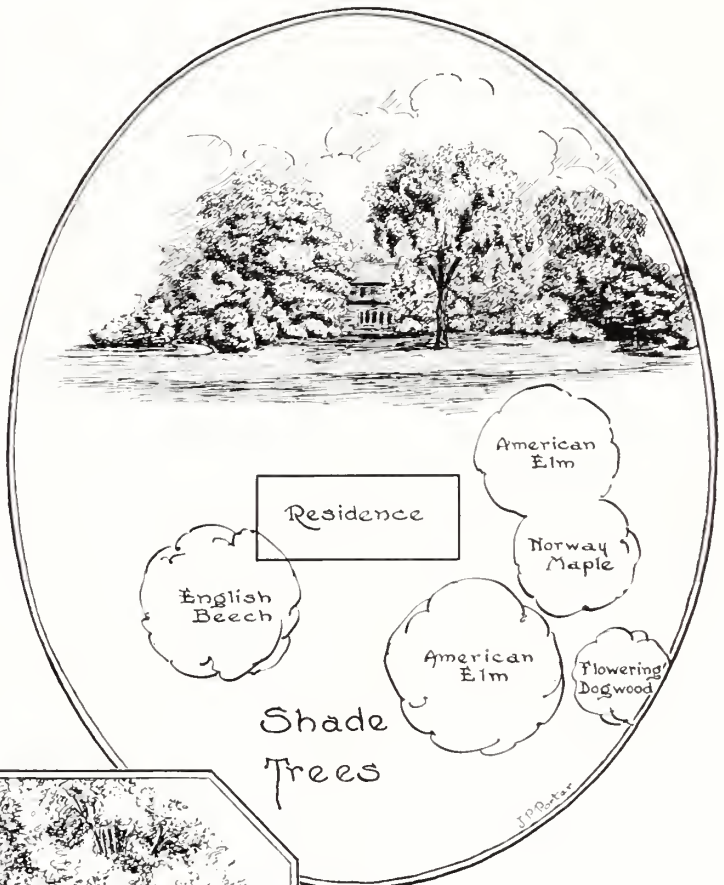 American
Elm
Residence
Norway
Maple
English
Beech
American
Elm
Flowering
Dogwood
Shade
Trees
J.P. Porter